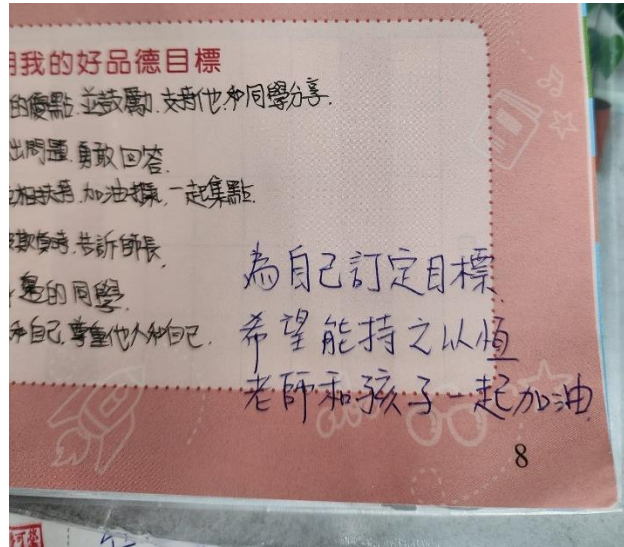 我的好品德目標
的優點.並鼓勵.支持他.和同學分享.
出問題.勇敢回答.
互相扶持.加油打氣,一起集點.
欺負時.告訴師長.
的同學.
和自己.尊重他人和自己.
為自己訂定目標
希望能持之以恆
老師和孩子一起加油
8